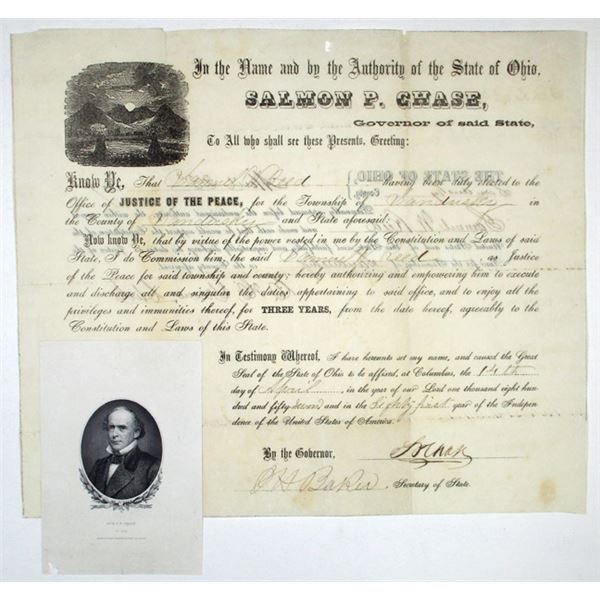 In the Name and by the Authority of the State of Ohio.
SALMON P. CHASE,
Governor of said State,
To All who shall see these Presents, Greeting:
Know Ye, That Samuel Reed having been duly elected to the
Office of JUSTICE OF THE PEACE, for the Township of Sandusky in
the County of and State aforesaid:
Now know Ye, that by virtue of the power vested in me by the Constitution and Laws of said
State, I do Commission him, the said Samuel Reed as Justice
of the Peace for said township and county; hereby authorizing and empowering him to execute
and discharge all and singular the duties appertaining to said office, and to enjoy all the
privileges and immunities thereof, for THREE YEARS, from the date hereof, agreeably to the
Constitution and Laws of this State.
In Testimony Whereof, I have hereunto set my name, and caused the Great
Seal of the State of Ohio to be affixed, at Columbus, the 14th
day of April in the year of our Lord one thousand eight hun
dred and fifty-seven and in the Eighty first year of the Indepen
dence of the United States of America.
By the Governor, S P Chase
Baker Secretary of State.
THE STATE OF OHIO,
County